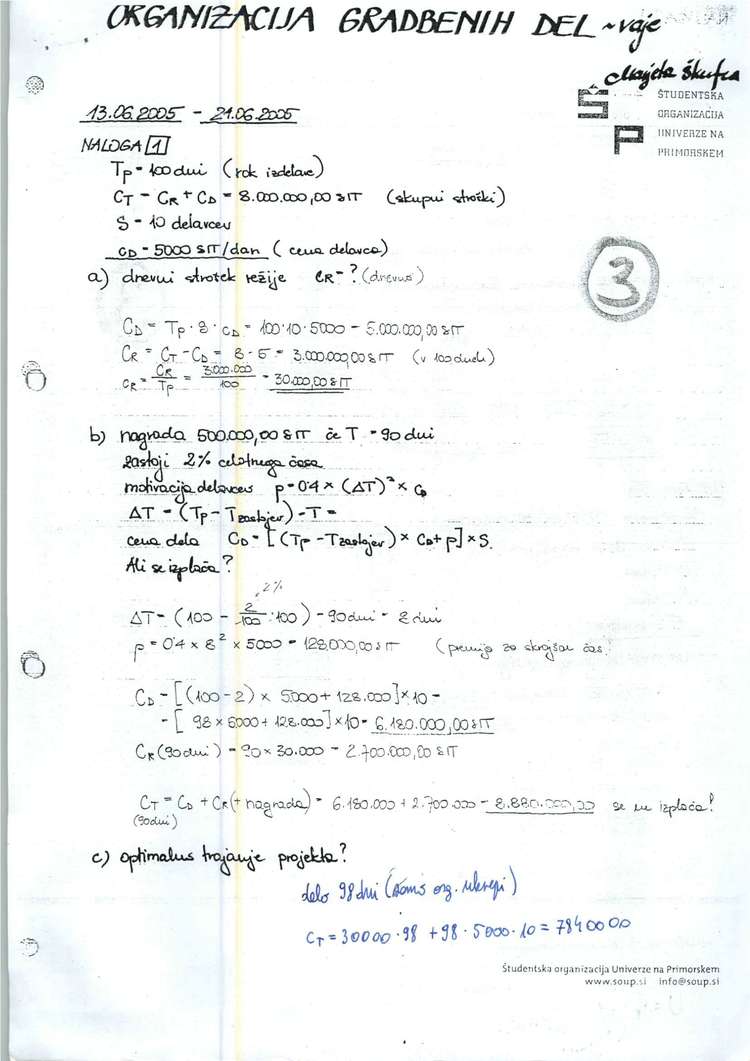 ORGANIZACIJA GRADBENIH DEL ~ vaje
Škufca
ŠTUDENTSKA
ORGANIZACIJA
UNIVERZE NA
PRIMORSKEM
Š
P
13.06.2005 - 21.06.2005
NALOGA 1
Tp = 100 dni (rok izdelave)
CT = CR + CD = 8.000.000,00 SIT (skupni stroški)
S = 10 delavcev
CD = 5000 SIT/dan (cena delavca)
a) dnevni strošek režije CR = ? (dnevno)
3
CD = Tp · S · CD = 100·10·5000 = 5.000.000,00 SIT
CR = CT - CD = 8 - 5 = 3.000.000,00 SIT (v 100 dneh)
CR = CR / Tp = 3.000.000 / 100 = 30.000,00 SIT
b) nagrada 500.000,00 SIT če T = 90 dni
zastoji 2% celotnega časa
motivacija delavcev p = 0'4 × (ΔT)² × CD
ΔT = (Tp - Tzastojev) - T =
cena dela CD = [(Tp - Tzastojev) × CD + p] × S
Ali se izplača?
2%
ΔT = (100 - 2/100 · 100) - 90 dni = 8 dni
p = 0'4 × 8² × 5000 = 128.000,00 SIT (premija za skrajšan čas)
CD = [(100 - 2) × 5000 + 128.000] × 10 =
= [98 × 5000 + 128.000] × 10 = 6.180.000,00 SIT
CR (90 dni) = 90 × 30.000 = 2.700.000,00 SIT
CT = CD + CR (+ nagrada) = 6.180.000 + 2.700.000 = 8.880.000,00 se ne izplača!
(90 dni)
c) optimalno trajanje projekta?
delo 98 dni (samo org. ukrepi)
CT = 30000 · 98 + 98 · 5000 · 10 = 7840000
Študentska organizacija Univerze na Primorskem
www.soup.si info@soup.si